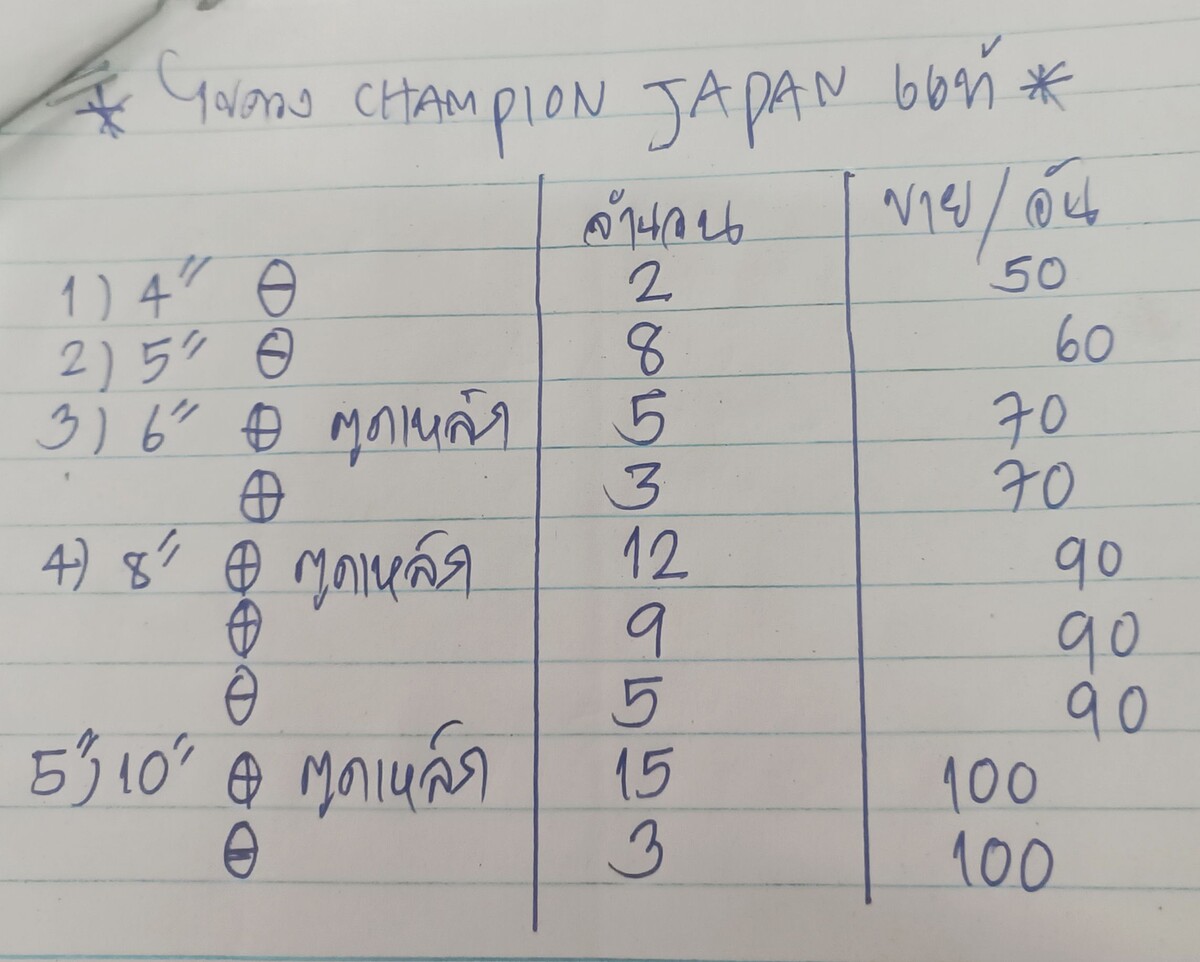 * ไขควง CHAMPION JAPAN แท้ *
จำนวน ขาย/อัน
1) 4" ⊖ 2 50
2) 5" ⊖ 8 60
3) 6" ⊕ ตูดเหล็ก 5 70
⊕ 3 70
4) 8" ⊕ ตูดเหล็ก 12 90
⊕ 9 90
⊖ 5 90
5") 10" ⊕ ตูดเหล็ก 15 100
⊖ 3 100